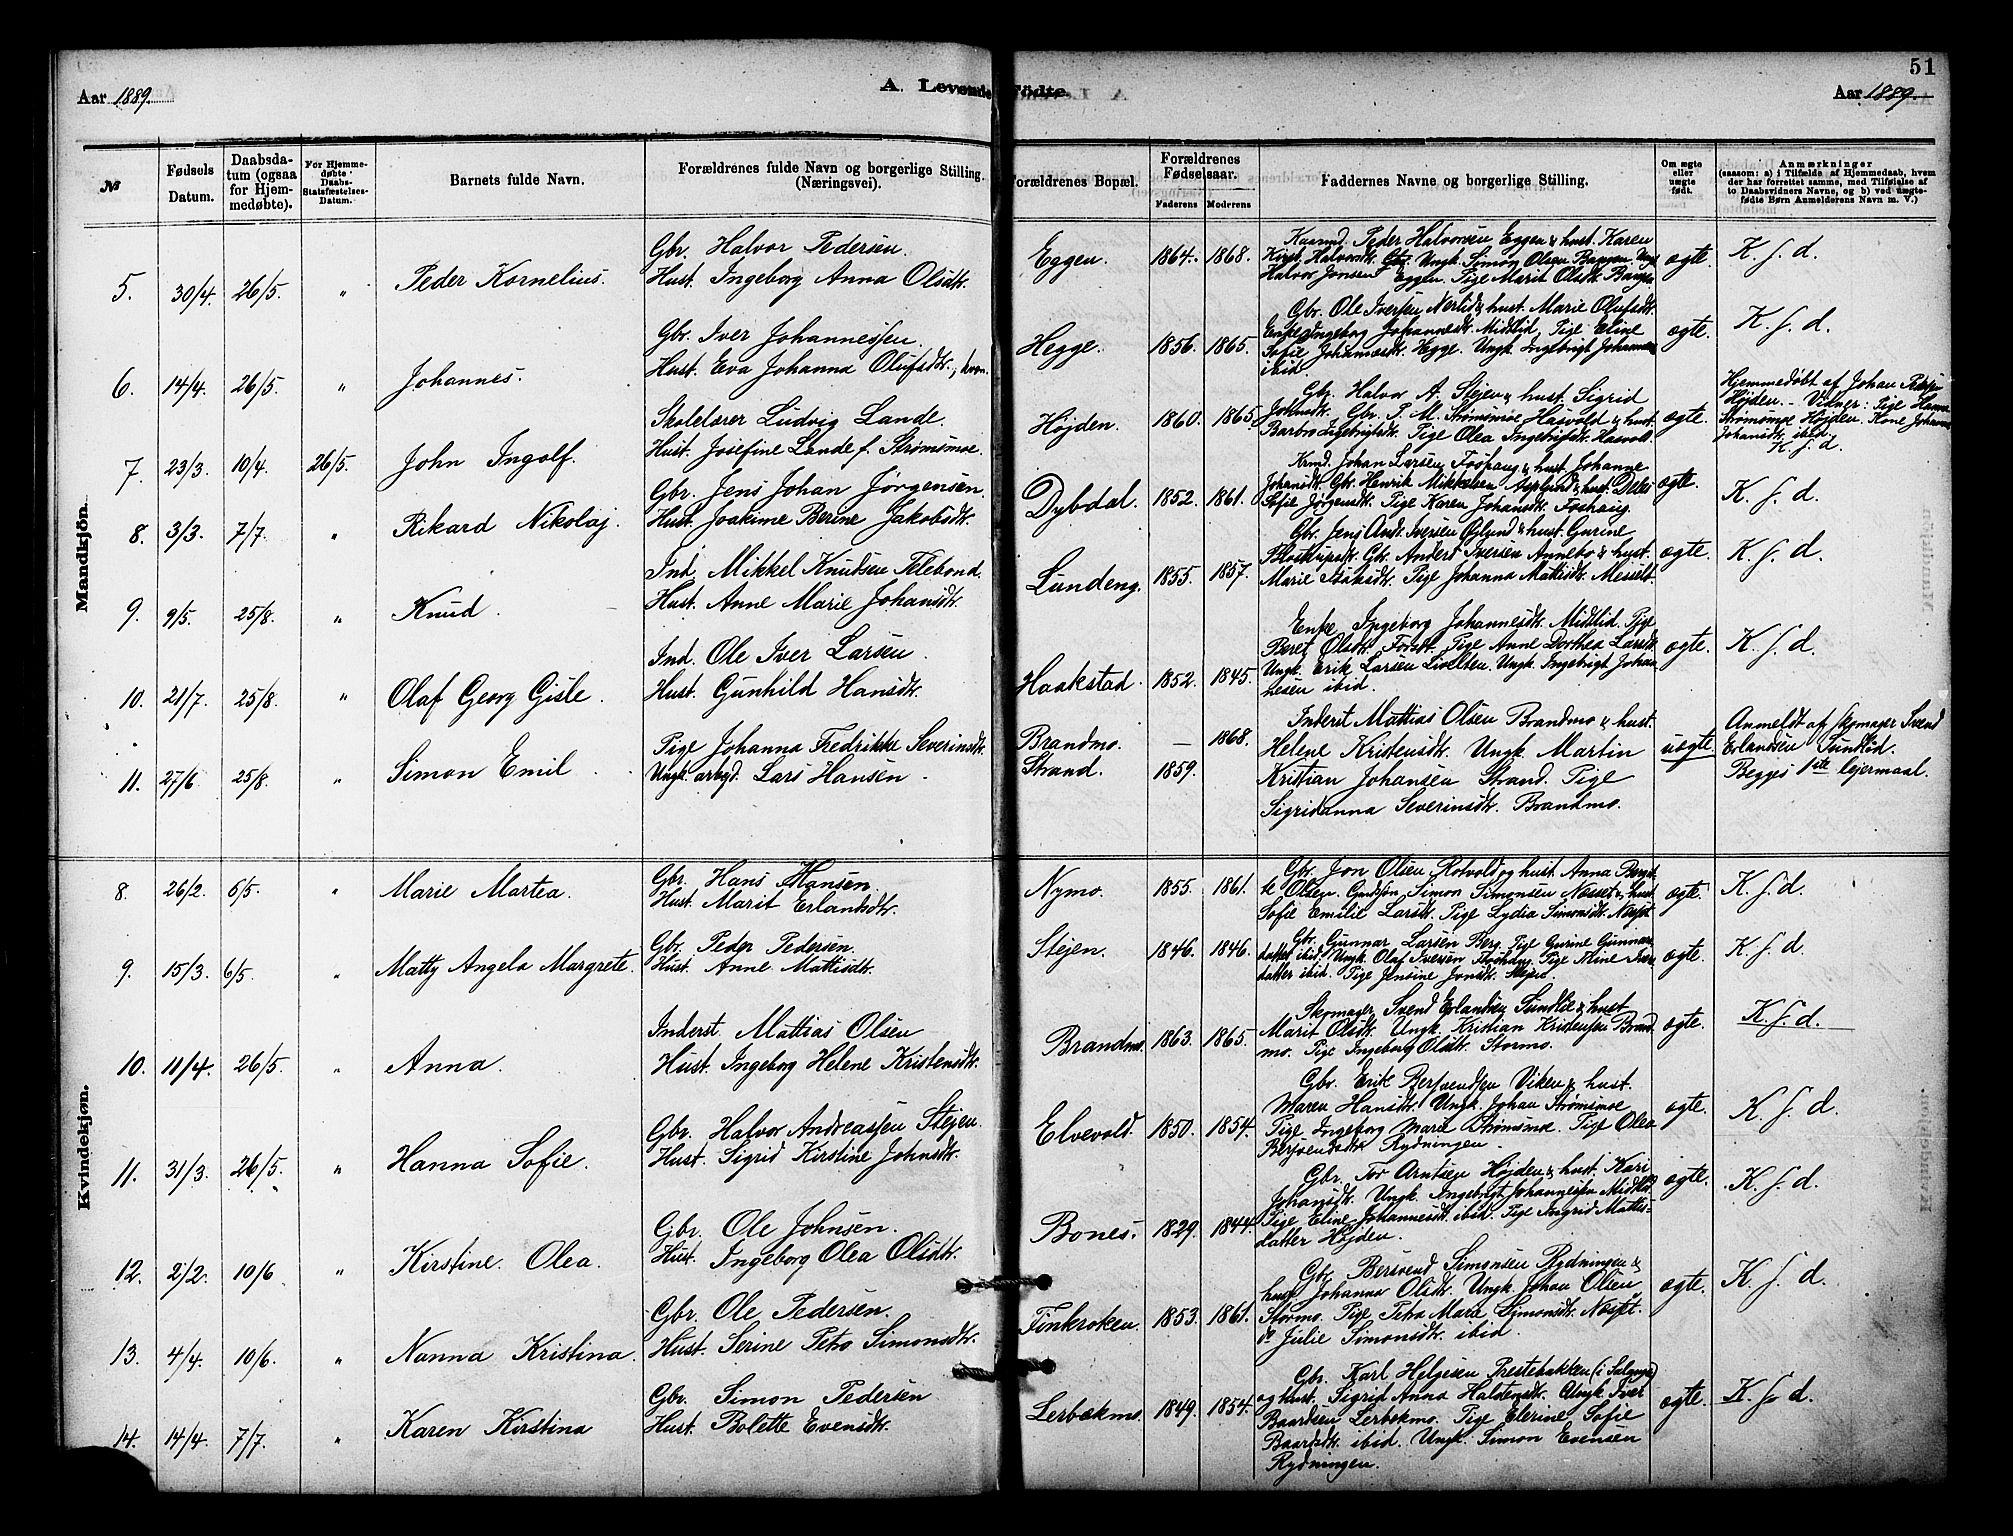 51
Aar 1889.
A. Levende Födte.
Aar 1889.
№
Fødsels Datum.
Daabsdatum (ogsaa for Hjemmedøbte).
For Hjemmedøbte Daabs-Stadfæstelses-Datum.
Barnets fulde Navn.
Forældrenes fulde Navn og borgerlige Stilling. (Næringsvei).
Forældrenes Bopæl.
Forældrenes Fødselsaar.
Faderens
Moderens
Faddernes Navne og borgerlige Stilling.
Om ægte eller uægte født.
Anmærkninger
(saasom: a) i Tilfælde af Hjemmedaab, hvem der har forrettet samme, med Tilføielse af to Daabsvidners Navne, og b) ved uægtefødte Børn Anmelderens Navn m. V.)
Mandkjön.
5. 30/4. 26/5. " Peder Kornelius.
Gbr. Halvor Pedersen.
Hust. Ingeborg Anna Olsdtr.
Eggen. 1864. 1868.
Kaarmd. Peder Halvorsen Eggen & hust. Karen
Kirst. Halvorsdtr. Ungk. Simon Olsen
Halvor Jonsen Eggen. Pige Marit Olsdtr.
ægte. K. f. d.
6. 14/4. 26/5. " Johannes.
Gbr. Iver Johannessen.
Hust. Eva Johanna Olufsdtr.
Hegge. 1856. 1865.
Gbr. Ole Iversen Nerlid & hust. Marie Olufsdtr.
Enke Ingeborg Johannesdtr. Midtlid, Pige Eline
Sofie Johannesdtr. Hegge. Ungk. Ingebrigt Johannes
ibid.
ægte. K. f. d.
7. 23/3. 10/4. 26/5. John Ingolf.
Skolelærer Ludvig Lande.
Hust. Josefine Lande f. Strømsmoe.
Højden. 1860. 1865.
Gbr. Halvor A. Stejen & hust. Sigrid
Johnsdtr. Gbr. P. M. Strømsmoe Hasvold & hust.
Barbro Ingebrigtsdtr. Pige Olea Ingebrigtsdtr. Hasvold.
ægte.
Hjemmedøbt af Johan
Højden. - Vidner: Pige Hanna
Strømsmoe Højden. Kone Johanna
Johansdtr. ibid.
K. f. d.
8. 3/3. 7/7. " Rikard Nikolaj.
Gbr. Jens Johan Jørgensen.
Hust. Joakime Berine Jakobsdtr.
Dybdal. 1852. 1861.
Krmd. Johan Larsen Foshaug & hust. Johanne
Johansdtr. Gbr. Henrik Mikkelsen & hust.
Sofie Jørgensdtr. Pige Karen Johansdtr. Foshaug.
ægte. K. f. d.
9. 9/5. 25/8. " Knud.
Ind. Mikkel Knudsen Flebond.
Hust. Anne Marie Johansdtr.
Lundeng. 1855. 1857.
Gbr. Jens Andr. Iversen & hust. Gurine
Gbr. Anders Iversen Annebo & hust.
Marie Isaksdtr. Pige Johanna Mattisdtr.
ægte. K. f. d.
10. 21/7. 25/8. " Olaf Georg Gisle.
Ind. Ole Iver Larsen.
Hust. Gunhild Hansdtr.
Haakstad. 1852. 1845.
Enke Ingeborg Johannesdtr. Midtlid. Pige
Beret Olsdtr. Pige Anne Dorthea Larsdtr.
Ungk. Erik Larsen Ungk. Ingebrigt Johan
nesen ibid.
ægte. K. f. d.
11. 27/6 25/8. " Simon Emil.
Pige Johanna Fredrikke Severinsdtr.
Ungk. arbejd. Lars Hansen.
Brandmo. — 1868.
Strand. 1859.
Inderst Mattias Olsen Brandmo & hust.
Helene Kristensdtr. Ungk. Martin
Kristian Johansen Strand. Pige
Sigridanna Severinsdtr. Brandmo.
uægte.
Anmeldt af Skomager Svend
Erlandsen Sundlid.
Begges 1ste lejermaal.
Kvindekjøn.
8. 26/2. 6/5. " Marie Martea.
Gbr. Hans Hansen.
Hust. Marit Erlandsdtr.
Nymo. 1855. 1861.
Gbr. Jon Olsen Rotvold og hust. Anna Berg
te Olsen. Simon Simonsen Næsset & hust
Sofie Emilie Larsdtr. Pige Lydia Simonsdtr.
ægte. K. f. d.
9. 15/3. 6/5. " Matty Angela Margrete.
Gbr. Peder Pedersen.
Hust. Anne Mattisdtr.
Stejen. 1846. 1846.
Gbr. Gunnar Larsen Berg. Pige Gurine Gunnars
datter ibid. Ungk. Olaf Iversen Pige
datter ibid. Pige Jensine Jonsdtr. Stejen.
ægte. K. f. d.
10. 11/4. 26/5. " Anna.
Inderst. Mattias Olsen
Hust. Ingeborg Helene Kristensdtr.
Brandmo. 1863. 1865.
Skomager Svend Erlandsen Sundlid & hust
Marit Olsdtr. Ungk. Kristian Kristensen Brand
mo. Pige Ingeborg Olsdtr. Stormo.
ægte. K. f. d.
11. 31/3. 26/5. " Hanna Sofie.
Gbr. Halvor Andreassen Stejen.
Hust. Sigrid Kirstine Johnsdtr.
Elvevold. 1850. 1854.
Gbr. Erik Bersvendsen Viken & hust.
Maren Hansdtr. Ungk. Johan Strømsmoe
Pige Ingeborg Marie Strømsmoe. Pige Olea
Bersvendsdtr. Rydningen.
ægte. K. f. d.
12. 2/2. 10/6 " Kirstine Olea.
Gbr. Ole Johnsen.
Hust. Ingeborg Olea Olsdtr.
Bones. 1829. 1844.
Gbr. Tor Arntsen Højden & hust. Kari
Johansdtr. Ungk. Ingebrigt Johannessen Midtlid
Pige Eline Johannesdtr. ibid. Pige Ingrid Mattis-
datter Højden.
ægte. K. f. d.
13. 4/4. 10/6. " Nanna Kristina.
Gbr. Ole Pedersen.
Hust. Serine Petro Simonsdtr.
Finkroken. 1853. 1861.
Gbr. Bersvend Simonsen Rydningen &
hust. Johanna Olsdtr. Ungk. Johan Olsen
Stormo. Pige Petra Marie Simonsdtr.
do Julie Simonsdtr. ibid.
ægte. K. f. d.
14. 14/4. 7/7. " Karen Kirstina
Gbr. Simon Pedersen
Hust. Bolette Evensdtr.
Lerbekmo. 1849. 1854.
Gbr. Karl Helgesen Prestebakken (i Salangen)
og hust. Sigrid Anna Haldensdtr. Ungk. Iver
Baardsen Lerbekmo. Pige Elerine Sofie
Baardsdtr. ibid. Ungk. Simon Evensen
Rydningen.
ægte. K. f. d.